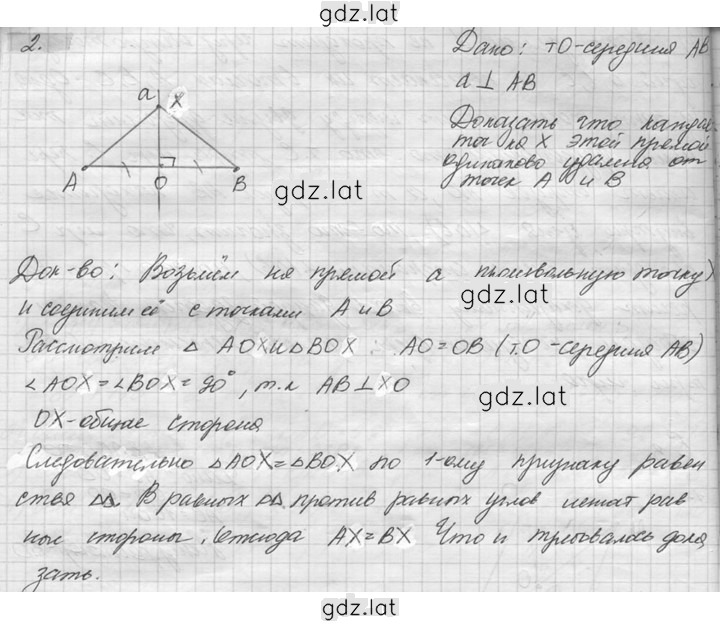 gdz.lat
2.
Дано: т.О-середина АВ
a ⊥ АВ
Доказать что каждая
точка Х этой прямой
одинаково удалена от
точек А и В
a
X
A
O
B
gdz.lat
Док-во: Возьмём на прямой a произвольную точку
gdz.lat
и соединим её с точками А и В
Рассмотрим △ AOX и △BOX : AO=OB (т.О-середина АВ)
∠AOX=∠BOX=90°, т.к AB⊥XO
gdz.lat
OX-общие сторона
Следовательно △AOX=△BOX по 1-ому признаку равен
ства △△. В равных △△ против равных углов лежат рав
ные стороны, отсюда AX=BX Что и требовалось дока
зать.
gdz.lat